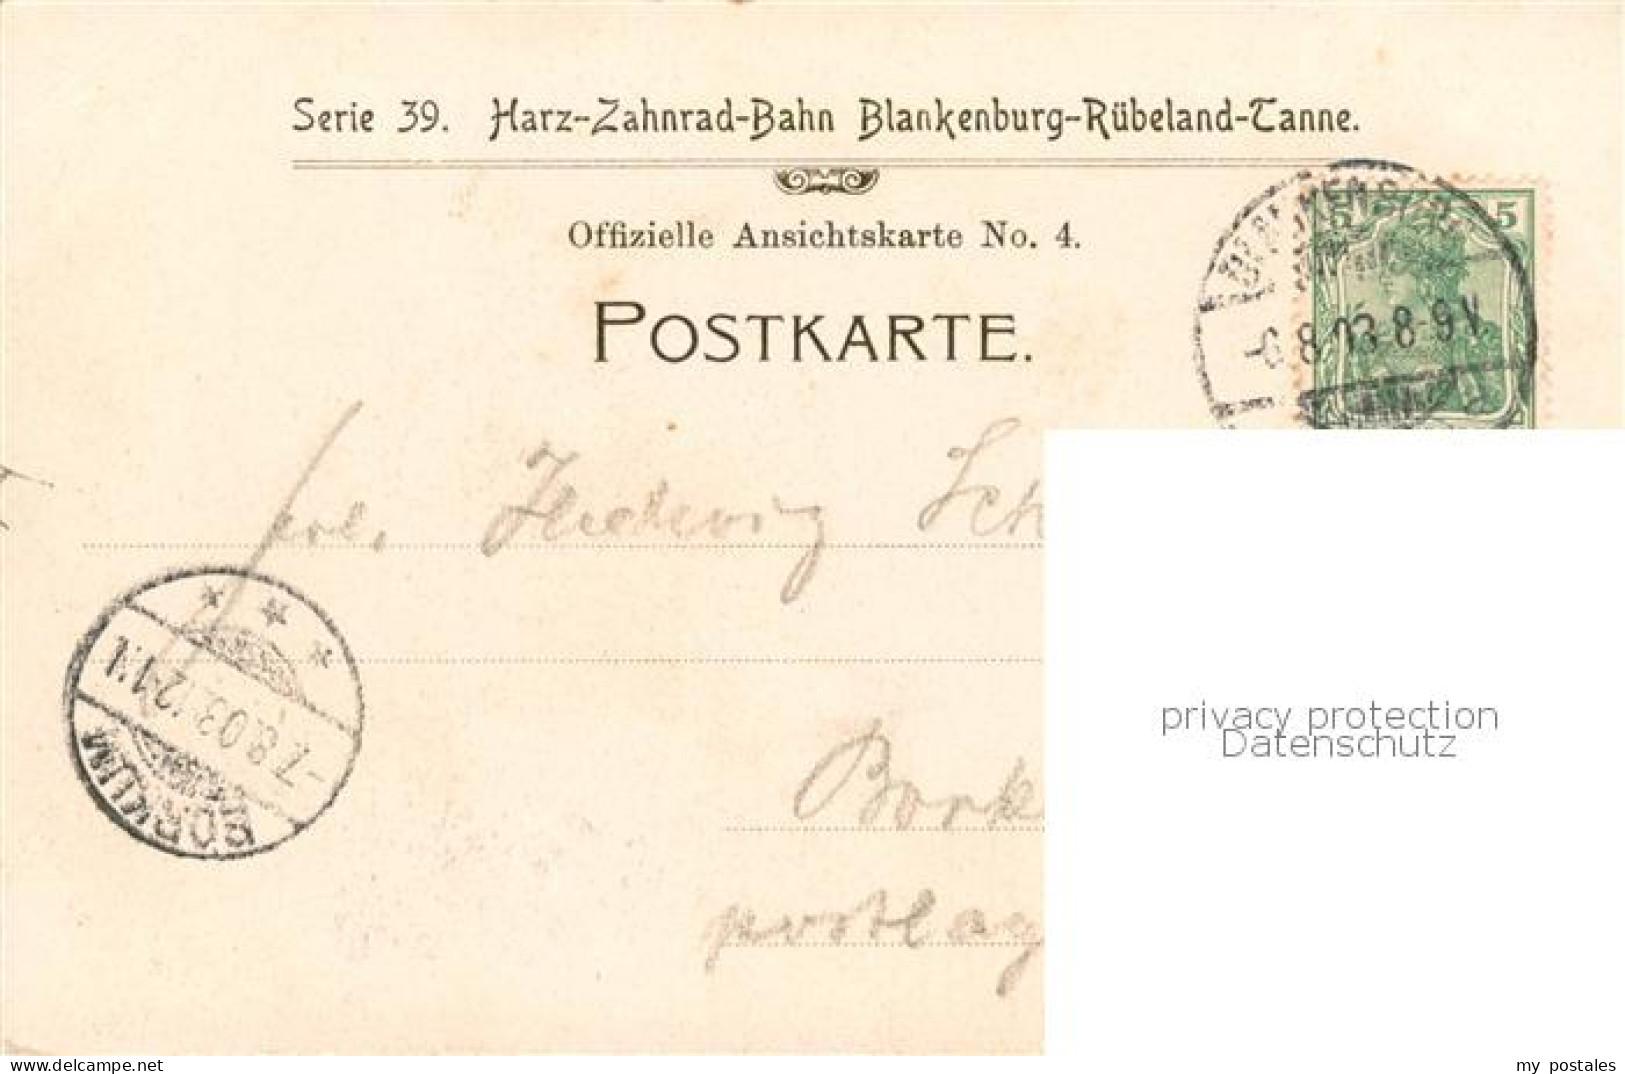 Serie 39. Harz-Zahnrad-Bahn Blankenburg-Rübeland-Tanne.
Offizielle Ansichtskarte No. 4.
POSTKARTE.
5 5
8.03 8-9V.
Frl. Hedwig Sch
7.8.03.12-1N.
BORKUM
Bork
postlag
privacy protection
Datenschutz
my postales